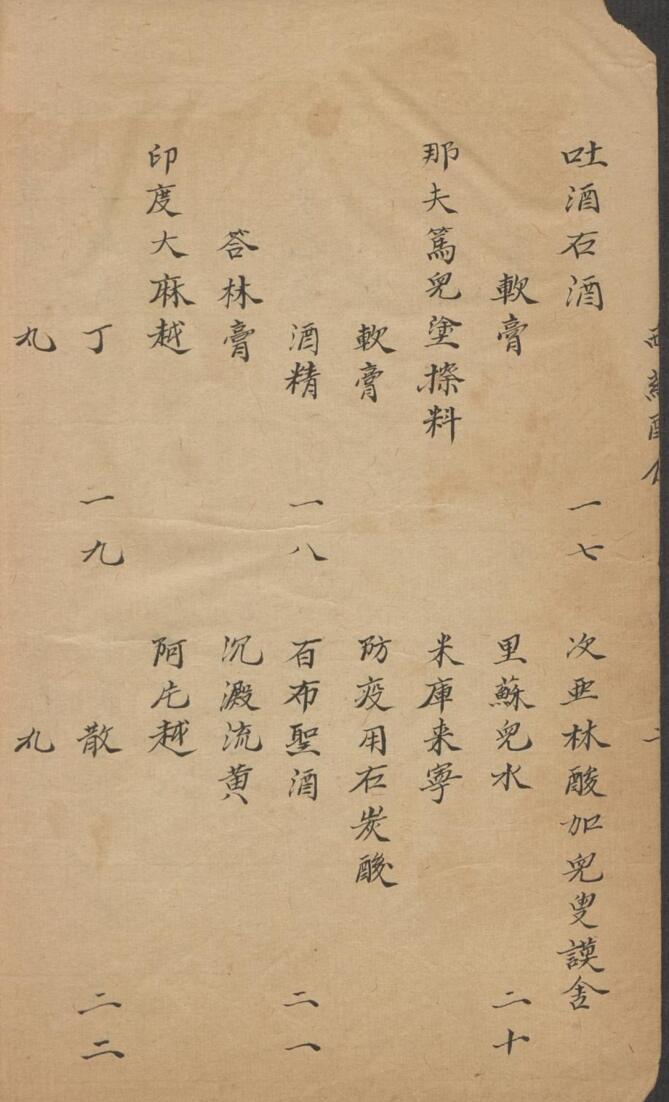 吐酒石酒 一七
軟膏
那夫篤兒塗擦料
軟膏
酒精 一八
答林膏
印度大麻越
丁 一九
丸
次亜林酸加兒叟謨舍
里蘇兒水 二十
米庫来寧
防疫用石炭酸
百布聖酒 二一
沉澱流黄
阿片越
散 二二
丸